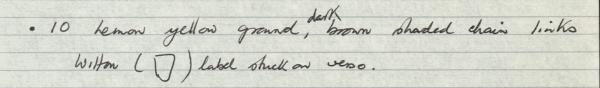 • 10 Lemon yellow ground, dark brown shaded chain links
Wilton ( ) label stuck on verso.